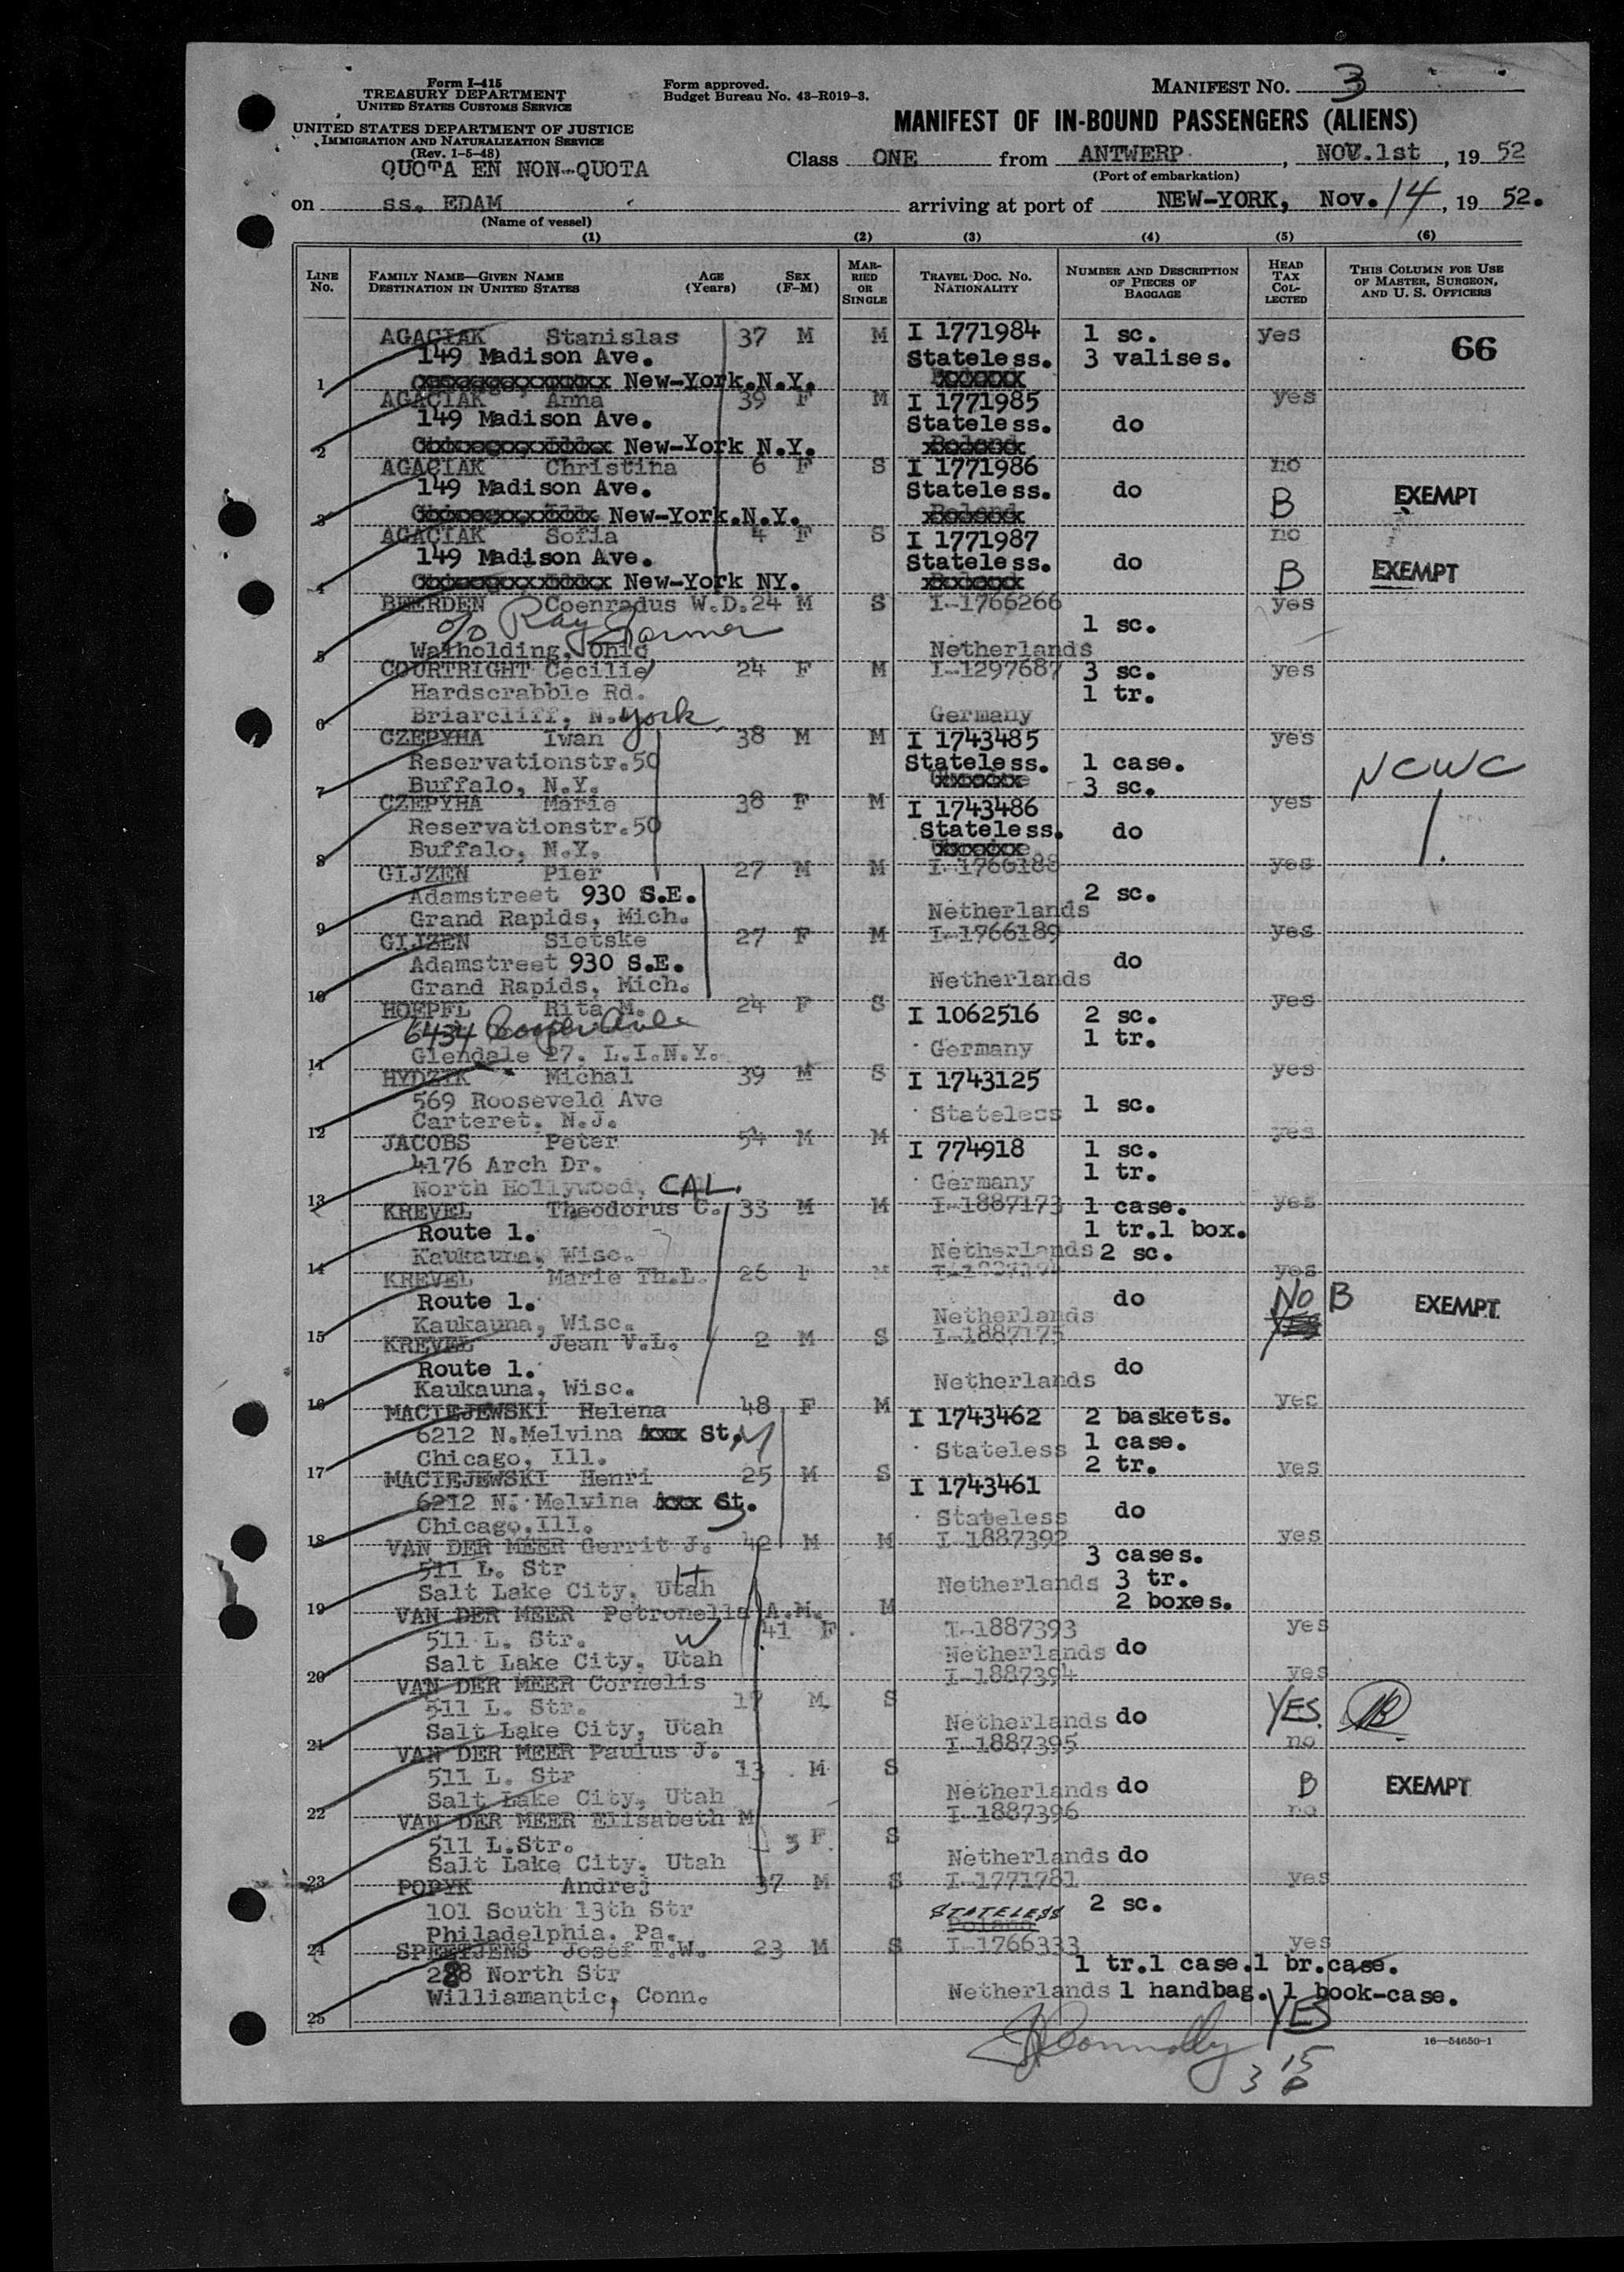 Form I-415
TREASURY DEPARTMENT
UNITED STATES CUSTOMS SERVICE
UNITED STATES DEPARTMENT OF JUSTICE
IMMIGRATION AND NATURALIZATION SERVICE
(Rev. 1-5-48)
QUOTA EN NON-QUOTA
Form approved.
Budget Bureau No. 43-R019-3.
MANIFEST NO. 3
MANIFEST OF IN-BOUND PASSENGERS (ALIENS)
Class ONE from ANTWERP, NOV.1st, 19 52
(Port of embarkation)
on ss. EDAM arriving at port of NEW-YORK, Nov. 14, 19 52.
(Name of vessel)
(1) (2) (3) (4) (5) (6)
LINE NO. FAMILY NAME—GIVEN NAME DESTINATION IN UNITED STATES AGE (Years) SEX (F-M) MARRIED OR SINGLE TRAVEL DOC. NO. NATIONALITY NUMBER AND DESCRIPTION OF PIECES OF BAGGAGE HEAD TAX COLLECTED THIS COLUMN FOR USE OF MASTER, SURGEON, AND U. S. OFFICERS
AGACIAK Stanislas 37 M M I 1771984 1 sc. yes
149 Madison Ave. Stateless. 3 valises. 66
1 New-York.N.Y.
AGACIAK Anna 39 F M I 1771985 yes
149 Madison Ave. Stateless. do
2 New-York N.Y.
AGACIAK Christina 6 F S I 1771986 no
149 Madison Ave. Stateless. do B EXEMPT
3 New-York.N.Y.
AGACIAK Sofia 4 F S I 1771987 no
149 Madison Ave. Stateless. do B EXEMPT
4 New-York NY.
BEERDEN Coenradus W.D. 24 M S I-1766266 yes
c/o Ray 1 sc.
5 Walholding, Ohio Netherlands
COURTRIGHT Cecilie 24 F M I-1297687 3 sc. yes
Hardscrabble Rd. 1 tr.
6 Briarcliff, N.York Germany
CZEPYHA Iwan 38 M M I 1743485 yes
Reservationstr.50 Stateless. 1 case. NCWC
7 Buffalo, N.Y. 3 sc.
CZEPYHA Marie 38 F M I 1743486 yes
Reservationstr.50 Stateless. do
8 Buffalo, N.Y.
GIJZEN Pier 27 M M I-1766188 yes
Adamstreet 930 S.E. 2 sc.
9 Grand Rapids, Mich. Netherlands
GIJZEN Sietske 27 F M I-1766189 yes
Adamstreet 930 S.E. do
10 Grand Rapids, Mich. Netherlands
HOEPFL Rita M. 24 F S I 1062516 2 sc. yes
6434 Cooper Ave 1 tr.
11 Glendale 27. L.I.N.Y. Germany
HYDZIK Michal 39 M S I 1743125 yes
569 Rooseveld Ave 1 sc.
12 Carteret. N.J. Stateless
JACOBS Peter 54 M M I 774918 1 sc. yes
4176 Arch Dr. 1 tr.
13 North Hollywood, CAL. Germany
KREVEL Theodorus C. 33 M M I-1887173 1 case. yes
Route 1. 1 tr.1 box.
14 Kaukauna, Wisc. Netherlands 2 sc.
KREVEL Marie Th.L. 26 F M yes
Route 1. do NO B EXEMPT
15 Kaukauna, Wisc. Netherlands YES
KREVEL Jean V.L. 2 M S I-1887175
Route 1. do
16 Kaukauna, Wisc. Netherlands
MACIEJEWSKI Helena 48 F M I 1743462 2 baskets. yes
6212 N.Melvina St. M Stateless 1 case.
17 Chicago, Ill. 2 tr.
MACIEJEWSKI Henri 25 M S I 1743461 yes
6212 N. Melvina St. S do
18 Chicago,Ill. Stateless
VAN DER MEER Gerrit J. 42 M M I-1887392 3 cases. yes
511 L. Str H Netherlands 3 tr.
19 Salt Lake City, Utah 2 boxes.
VAN DER MEER Petronella A.M. 41 F M I-1887393 yes
511 L. Str. W Netherlands do
20 Salt Lake City, Utah
VAN DER MEER Cornelis 17 M S I-1887394 yes
511 L. Str. Netherlands do YES.
21 Salt Lake City, Utah
VAN DER MEER Paulus J. 13 M S I-1887395 no
511 L. Str Netherlands do B EXEMPT
22 Salt Lake City, Utah
VAN DER MEER Elisabeth M 3 F S I-1887396 no
511 L.Str. Netherlands do
23 Salt Lake City, Utah
POPYK Andrej 37 M S I-1771781 yes
101 South 13th Str STATELESS 2 sc.
24 Philadelphia. Pa. Poland
SPEETJENS Josef T.W. 23 M S I-1766333 yes
288 North Str 1 tr.1 case.1 br.case.
25 Williamantic, Conn. Netherlands 1 handbag. 1 book-case.
YES
Connolly
16—54650-1
3 15